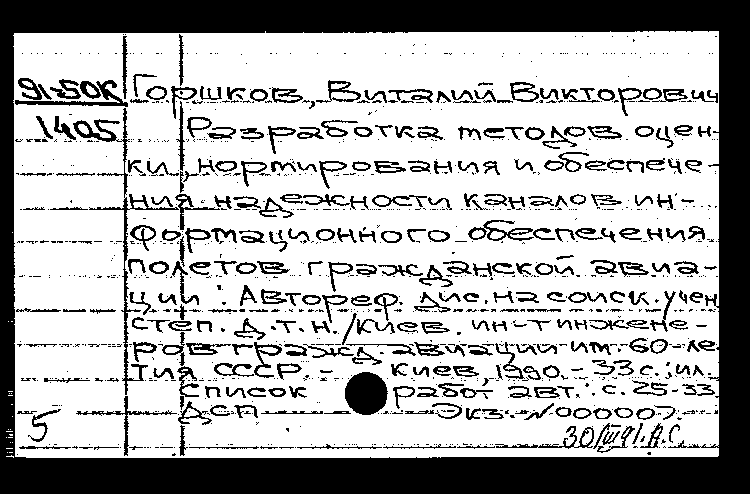 91-50К Горшков, Виталий Викторович
1405 Разработка методов оцен-
ки, нормирования и обеспече-
ния надежности каналов ин-
формационного обеспечения
полетов гражданской авиа-
ции : Автореф. дис. на соиск. учен
степ. д.т.н. / Киев. ин-т инжене-
ров гражд. авиации им. 60-ле-
тия СССР. - Киев, 1990. - 33 с. : ил.
Список работ авт.: с. 25-33
ДСП Экз. N000007.
5 30/VII 91. А.С.